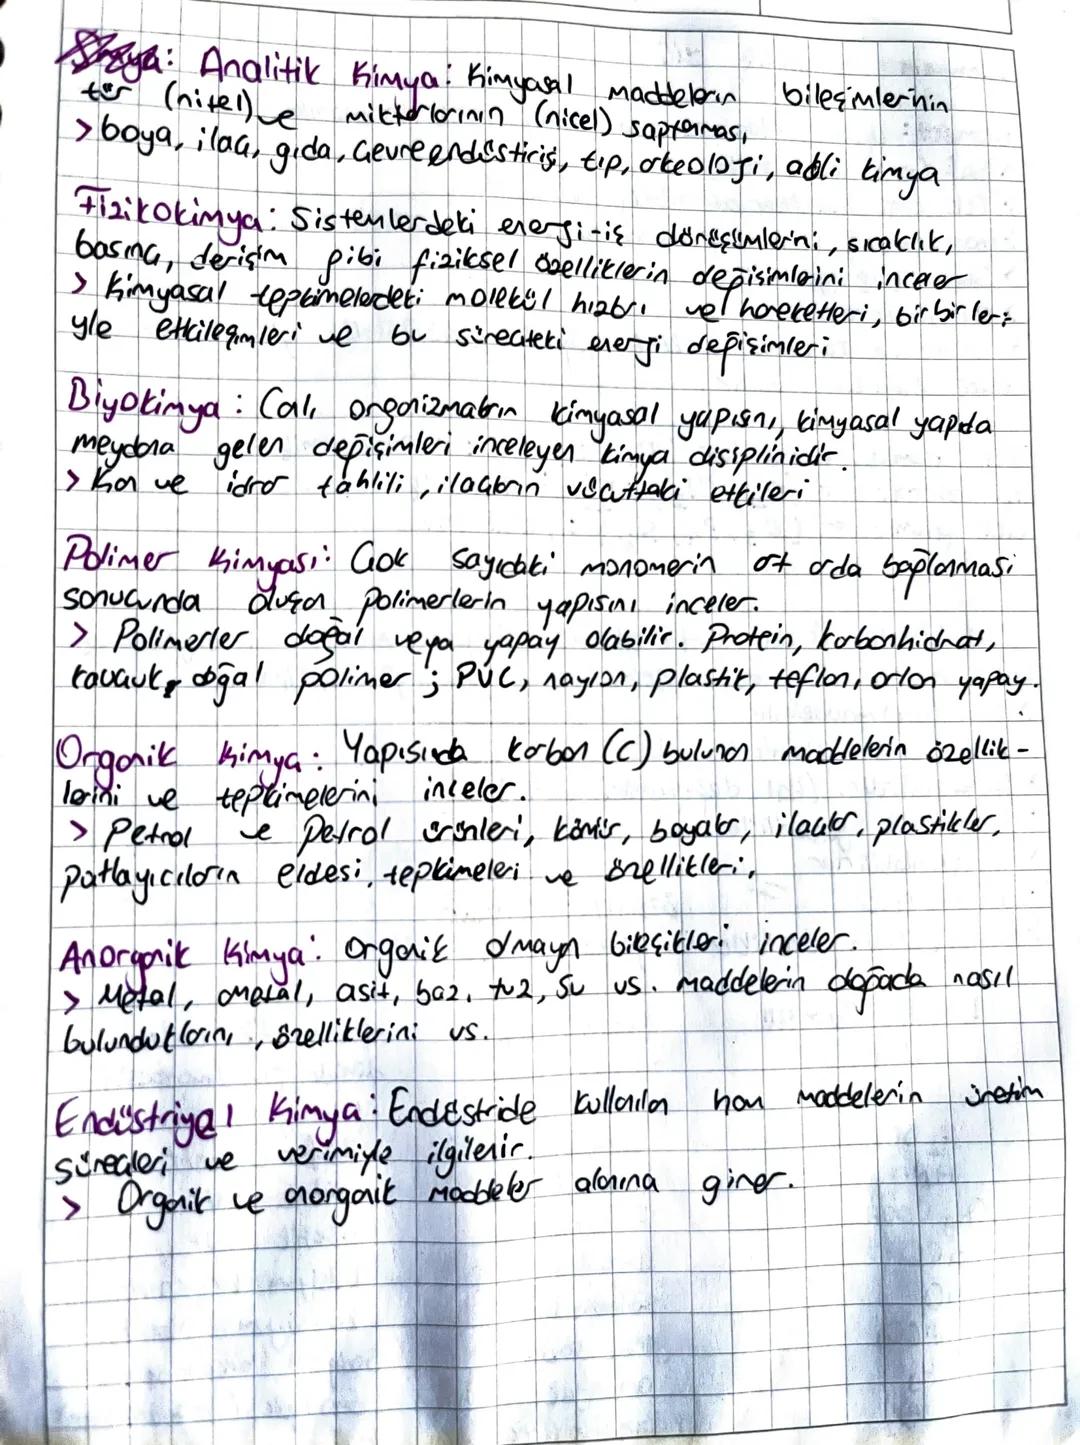 Analitik Kimya: Kimyasal maddelerin bileşimlerinin
tür (nitel) ve miktarlarının (nicel) saptanması
> boya, ilaç, gıda, çevre endüstirisi, tıp, arkeoloji, adli kimya
Fizikokimya: Sistemlerdeki enerji-iş dönüşümlerini, sıcaklık,
basınç, derişim gibi fiziksel özelliklerin değişimlerini inceler
> Kimyasal tepkimelerdeki molekül hızları ve hareketleri, birbirleri-
yle etkileşimleri ve bu süreçteki enerji değişimleri
Biyokimya: Canlı organizmaların kimyasal yapısını, kimyasal yapıda
meydana gelen değişimleri inceleyen kimya disiplinidir.
> Kan ve idrar tahlili, ilaçların vücuttaki etkileri
Polimer Kimyası: Çok sayıdaki monomerin art arda bağlanması
sonucunda oluşan polimerlerin yapısını inceler.
> Polimerler doğal veya yapay olabilir. Protein, karbonhidrat,
kauçuk, doğal polimer; PVC, naylon, plastik, teflon, orlon yapay.
Organik Kimya: Yapısında karbon (C) bulunan maddelerin özellik-
lerini ve tepkimelerini inceler.
> Petrol ve petrol ürünleri, kömür, boyalar, ilaçlar, plastikler,
patlayıcıların eldesi, tepkimeleri ve özellikleri.
Anorganik Kimya: Organik olmayan bileşikleri inceler.
> Metal, ametal, asit, baz, tuz, su vs. maddelerin doğada nasıl
bulunduklarını, özelliklerini vs.
Endüstriyel Kimya: Endüstride kullanılan ham maddelerin üretim
süreçleri ve verimiyle ilgilenir.
> Organik ve anorganik maddeler alanına girer.